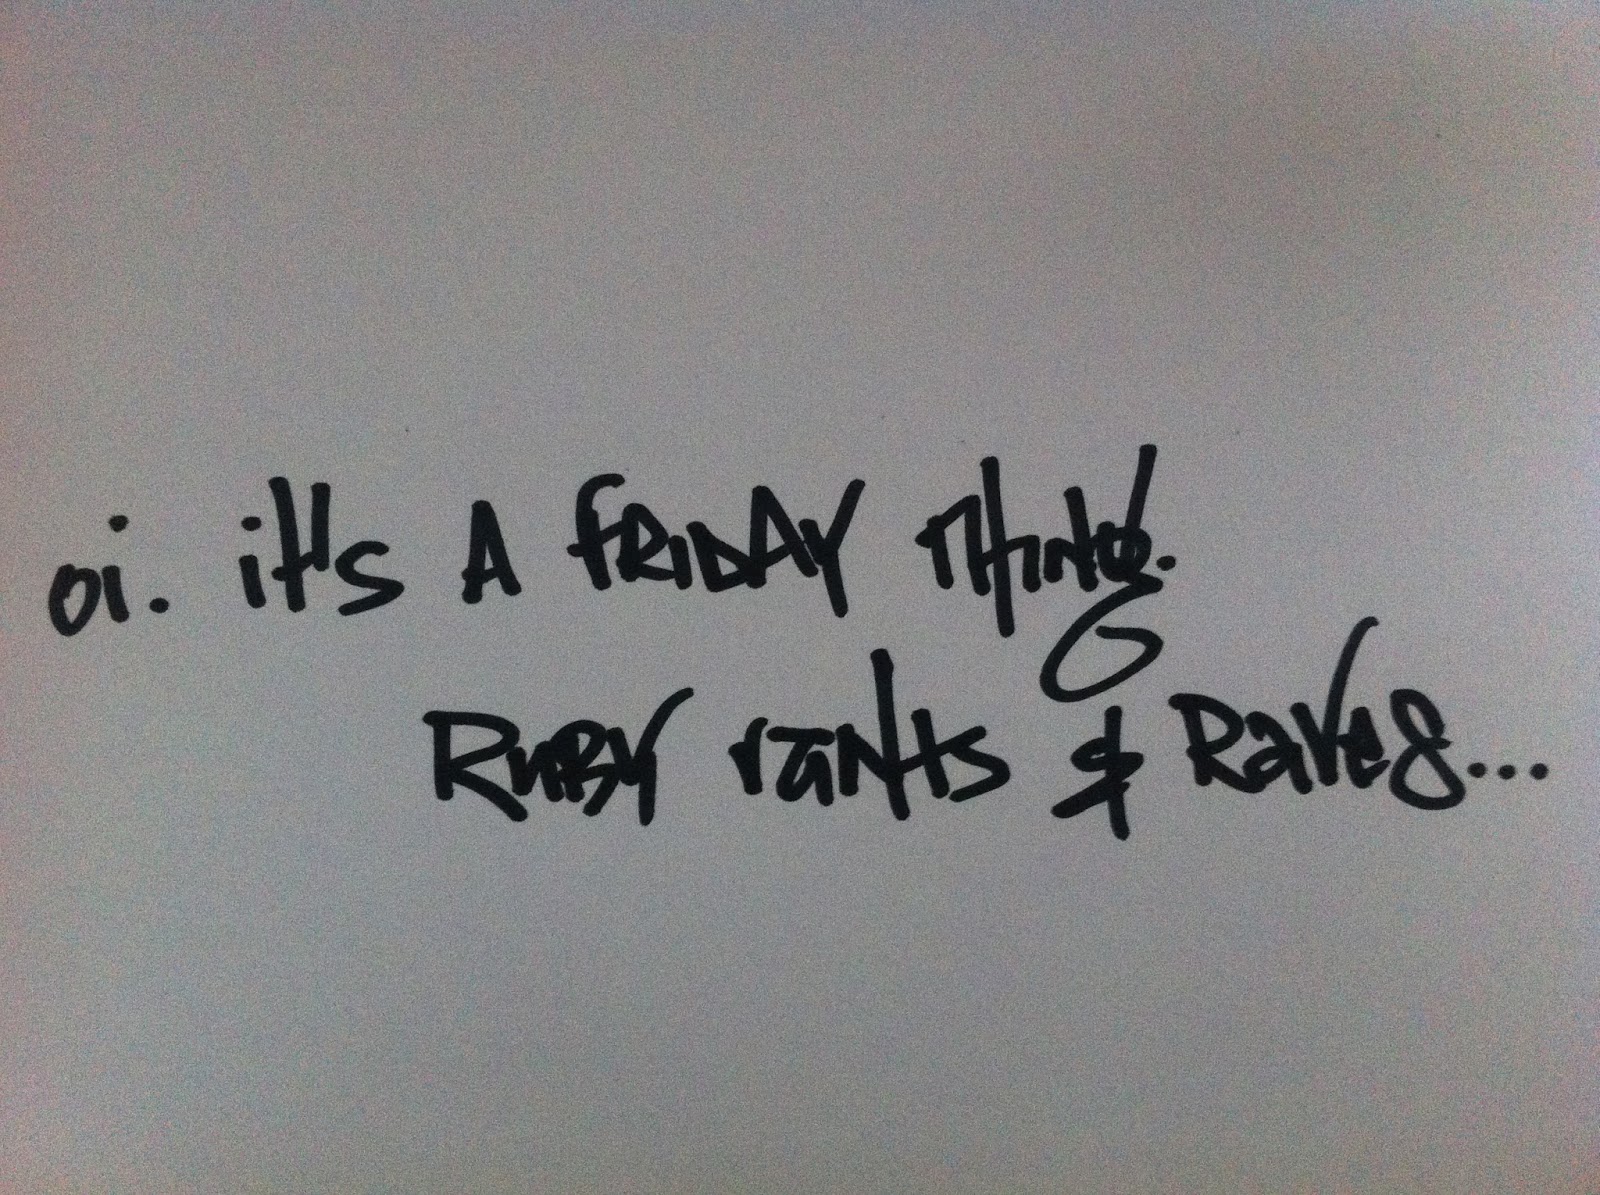 oi. it's A FRiDAY THiNG.
RuBy rants & RaVes...